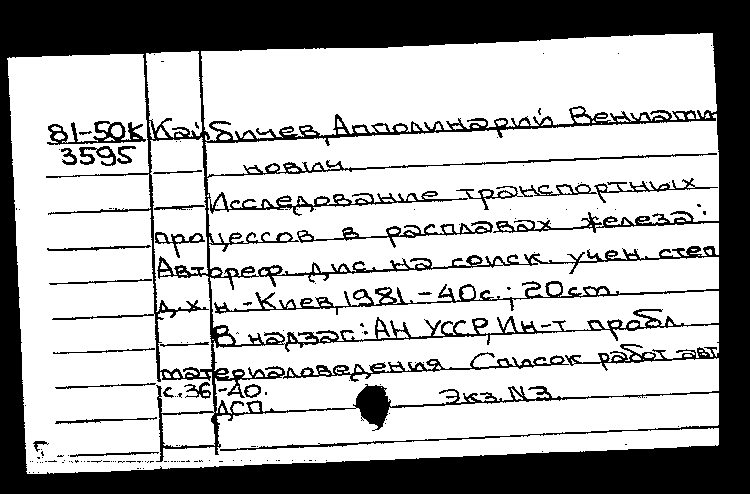 81-50К Кайбичев, Апполинарий Вениами
3595 нович.
Исследование транспортных
процессов в расплавах железа:
Автореф. дис. на соиск. учен. степ
д.х.н. - Киев, 1981. - 40с.; 20см.
В надзаг: АН УССР, Ин-т пробл.
материаловедения. Список работ авт
с.36-40.
ДСП. Экз. N3.